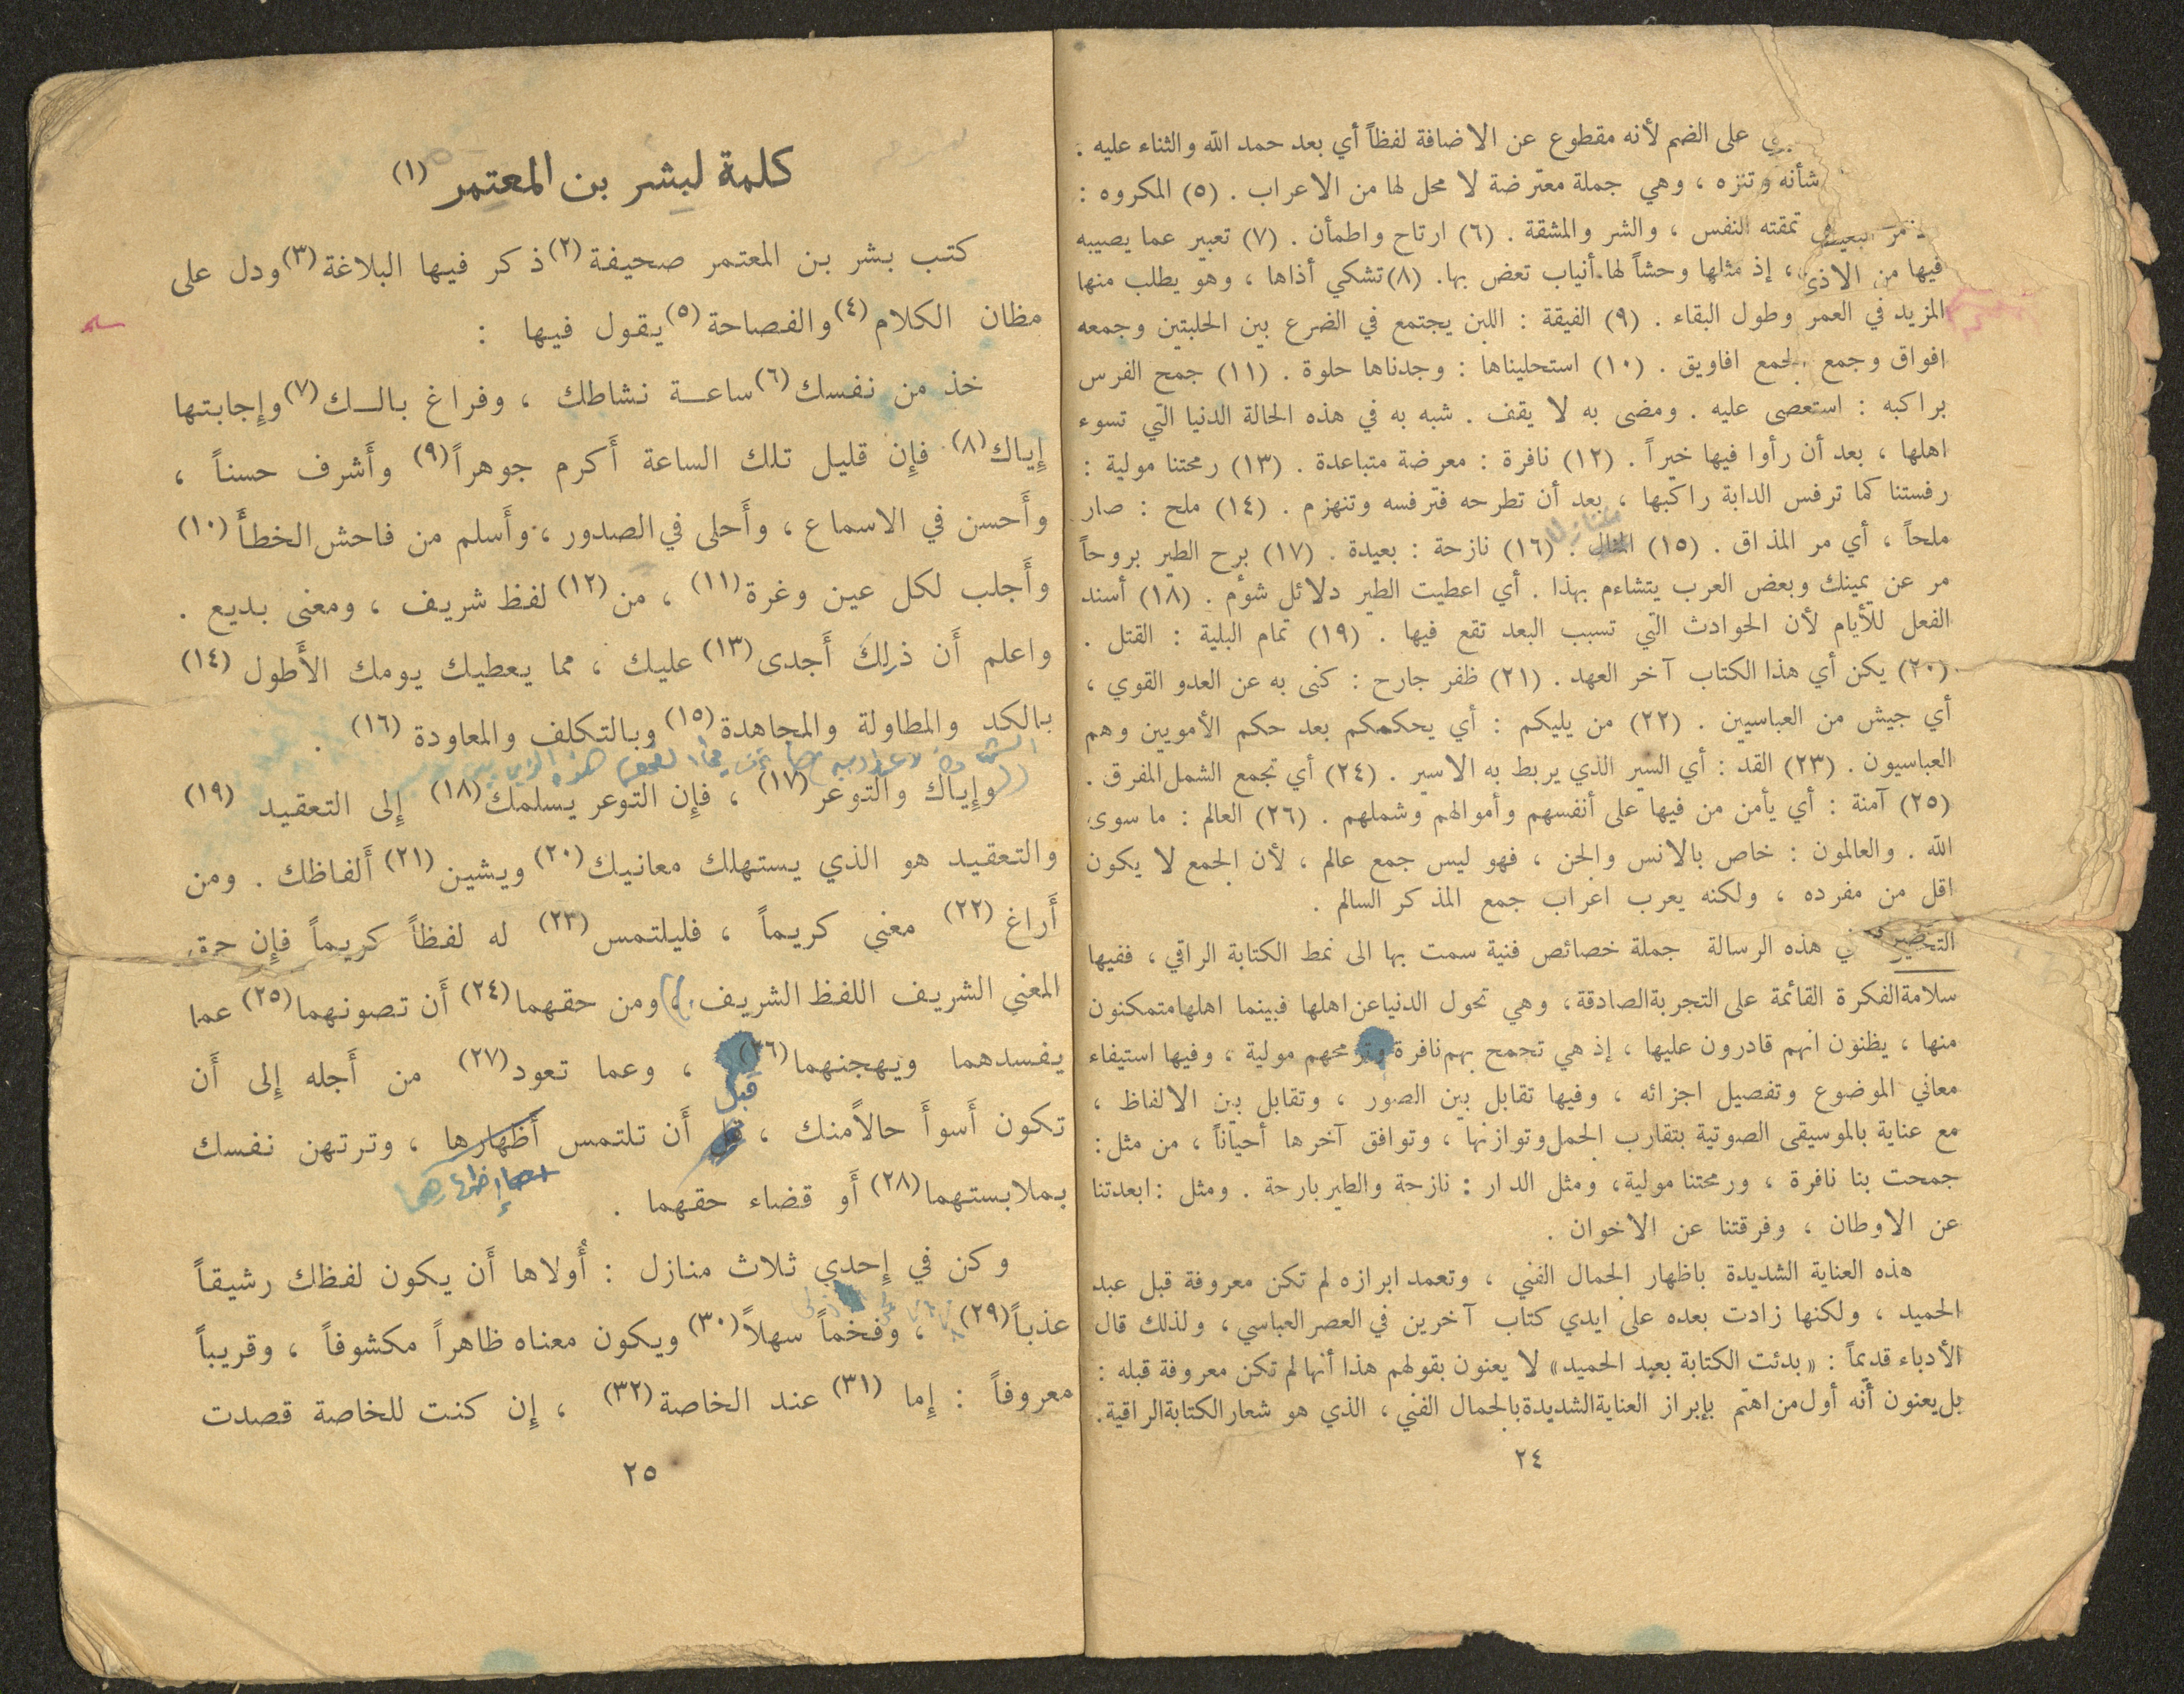 على الضم لأنه مقطوع عن الاضافة لفظاً أي بعد حمد الله والثناء عليه .
شأنه وتنزه ، وهي جملة معترضة لا محل لها من الاعراب . (٥) المكروه :
تمقته النفس ، والشر والمشقة . (٦) ارتاح واطمأن . (٧) تعبير عما يصيبه
فيها من الاذى ، إذ مثلها وحشاً لها أنياب تعض بها . (٨) تشكي أذاها ، وهو يطلب منها
المزيد في العمر وطول البقاء . (٩) الفيقة : اللبن يجتمع في الضرع بين الحلبتين وجمعه
افواق وجمع الجمع افاويق . (١٠) استحليناها : وجدناها حلوة . (١١) جمح الفرس
براكبه : استعصى عليه . ومضى به لا يقف . شبه به في هذه الحالة الدنيا التي تسوء
اهلها ، بعد أن رأوا فيها خيراً . (١٢) نافرة : معرضة متباعدة . (١٣) رمحتنا مولية :
رفستنا كما ترفس الدابة راكبها ، بعد أن تطرحه فترفسه وتنهزم . (١٤) ملح : صار
ملحاً ، أي مر المذاق . (١٥) . (١٦) نازحة : بعيدة . (١٧) برح الطير بروحاً
مر عن يمينك وبعض العرب يتشاءم بهذا . أي اعطيت الطير دلائل شؤم . (١٨) أسند
الفعل للأيام لأن الحوادث التي تسبب البعد تقع فيها . (١٩) تمام البلية : القتل .
(٢٠) يكن أي هذا الكتاب آخر العهد . (٢١) ظفر جارح : كنى به عن العدو القوي ،
أي جيش من العباسيين . (٢٢) من يليكم : أي يحكمكم بعد حكم الأمويين وهم
العباسيون . (٢٣) القد : أي السير الذي يربط به الاسير . (٢٤) أي تجمع الشمل المفرق .
(٢٥) آمنة : أي يأمن من فيها على أنفسهم وأموالهم وشملهم . (٢٦) العالم : ما سوى
الله . والعالمون : خاص بالانس والجن ، فهو ليس جمع عالم ، لأن الجمع لا يكون
اقل من مفرده ، ولكنه يعرب اعراب جمع المذكر السالم .
التحضير في هذه الرسالة جملة خصائص فنية سمت بها الى نمط الكتابة الراقي ، ففيها
سلامة الفكرة القائمة على التجربة الصادقة ، وهي تحول الدنيا عن اهلها فبينما اهلها متمكنون
منها ، يظنون انهم قادرون عليها ، إذ هي تجمح بهم نافرة وترمحهم مولية ، وفيها استيفاء
معاني الموضوع وتفصيل اجزائه ، وفيها تقابل بين الصور ، وتقابل بين الالفاظ ،
مع عناية بالموسيقى الصوتية بتقارب الجمل وتوازنها ، وتوافق آخرها أحياناً ، من مثل :
جمحت بنا نافرة ، ورمحتنا مولية ، ومثل الدار : نازحة والطير بارحة . ومثل : ابعدتنا
عن الاوطان ، وفرقتنا عن الاخوان .
هذه العناية الشديدة باظهار الجمال الفني ، وتعمد ابرازه لم تكن معروفة قبل عبد
الحميد ، ولكنها زادت بعده على ايدي كتاب آخرين في العصر العباسي ، ولذلك قال
الأدباء قديماً : « بدئت الكتابة بعبد الحميد » لا يعنون بقولهم هذا أنها لم تكن معروفة قبله :
بل يعنون أنه أول من اهتم بإبراز العناية الشديدة بالجمال الفني ، الذي هو شعار الكتابة الراقية .
٢٤
كلمة لبشر بن المعتمر (١)
كتب بشر بن المعتمر صحيفة (٢) ذكر فيها البلاغة (٣) ودل على
مظان الكلام (٤) والفصاحة (٥) يقول فيها :
خذ من نفسك (٦) ساعة نشاطك ، وفراغ بالك (٧) وإجابتها
إياك (٨) فإن قليل تلك الساعة أكرم جوهراً (٩) وأشرف حسناً ،
وأحسن في الاسماع ، وأحلى في الصدور ، وأسلم من فاحش الخطأ (١٠)
وأجلب لكل عين وغرة (١١) ، من (١٢) لفظ شريف ، ومعنى بديع .
واعلم أن ذلك أجدى (١٣) عليك ، مما يعطيك يومك الأطول (١٤)
بالكد والمطاولة والمجاهدة (١٥) وبالتكلف والمعاودة (١٦) .
وإياك والتوعر (١٧) ، فإن التوعر يسلمك (١٨) إلى التعقيد (١٩)
والتعقيد هو الذي يستهلك معانيك (٢٠) ويشين (٢١) ألفاظك . ومن
أراغ (٢٢) معني كريماً ، فليلتمس (٢٣) له لفظاً كريماً فإن حق
المعني الشريف اللفظ الشريف ، ومن حقهما (٢٤) أن تصونهما (٢٥) عما
يفسدهما ويهجنهما (٢٦) ، وعما تعود (٢٧) من أجله إلى أن
قبل
تكون أسوأ حالاً منك ، أن تلتمس أظهارها ، وترتهن نفسك
إظهارهما
بملابستهما (٢٨) أو قضاء حقهما .
وكن في إحدي ثلاث منازل : أولاها أن يكون لفظك رشيقاً
عذباً (٢٩) ، وفخماً سهلاً (٣٠) ويكون معناه ظاهراً مكشوفاً ، وقريباً
معروفاً : إما (٣١) عند الخاصة (٣٢) ، إن كنت للخاصة قصدت
٢٥